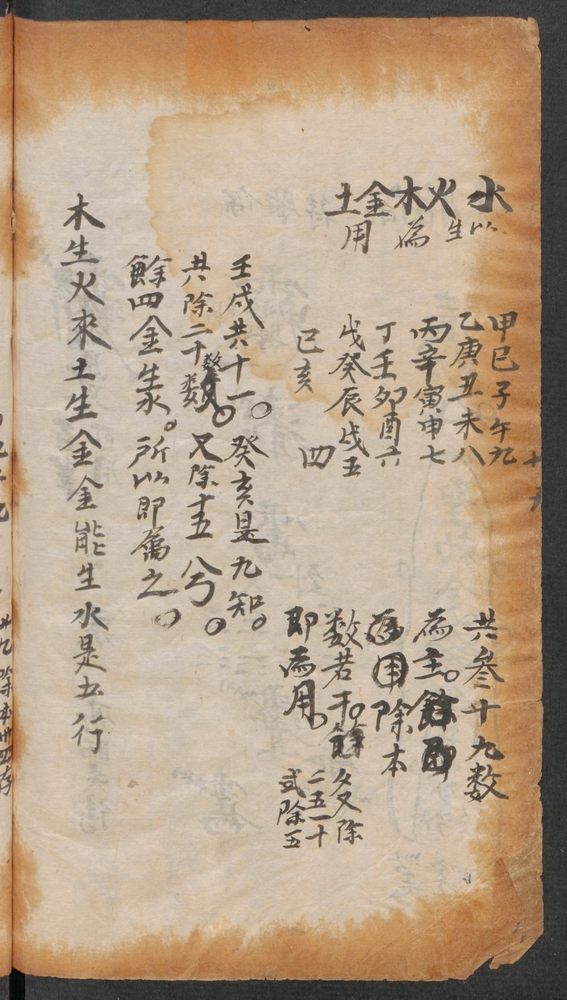 水火木金土
以生為用
甲己子午九
乙庚丑未八
丙辛寅申七
丁壬卯酉六
戊癸辰戌五
巳亥 四
共叁十九数
為主。餘即
為用除本
数若干。餘
即為用。
多又除
二五一十
式除五
壬戌共十一。癸亥是九知。
共除二十数。又除十五兮。
餘四金生水。所以即属之。
木生火來土生金金能生水是五行